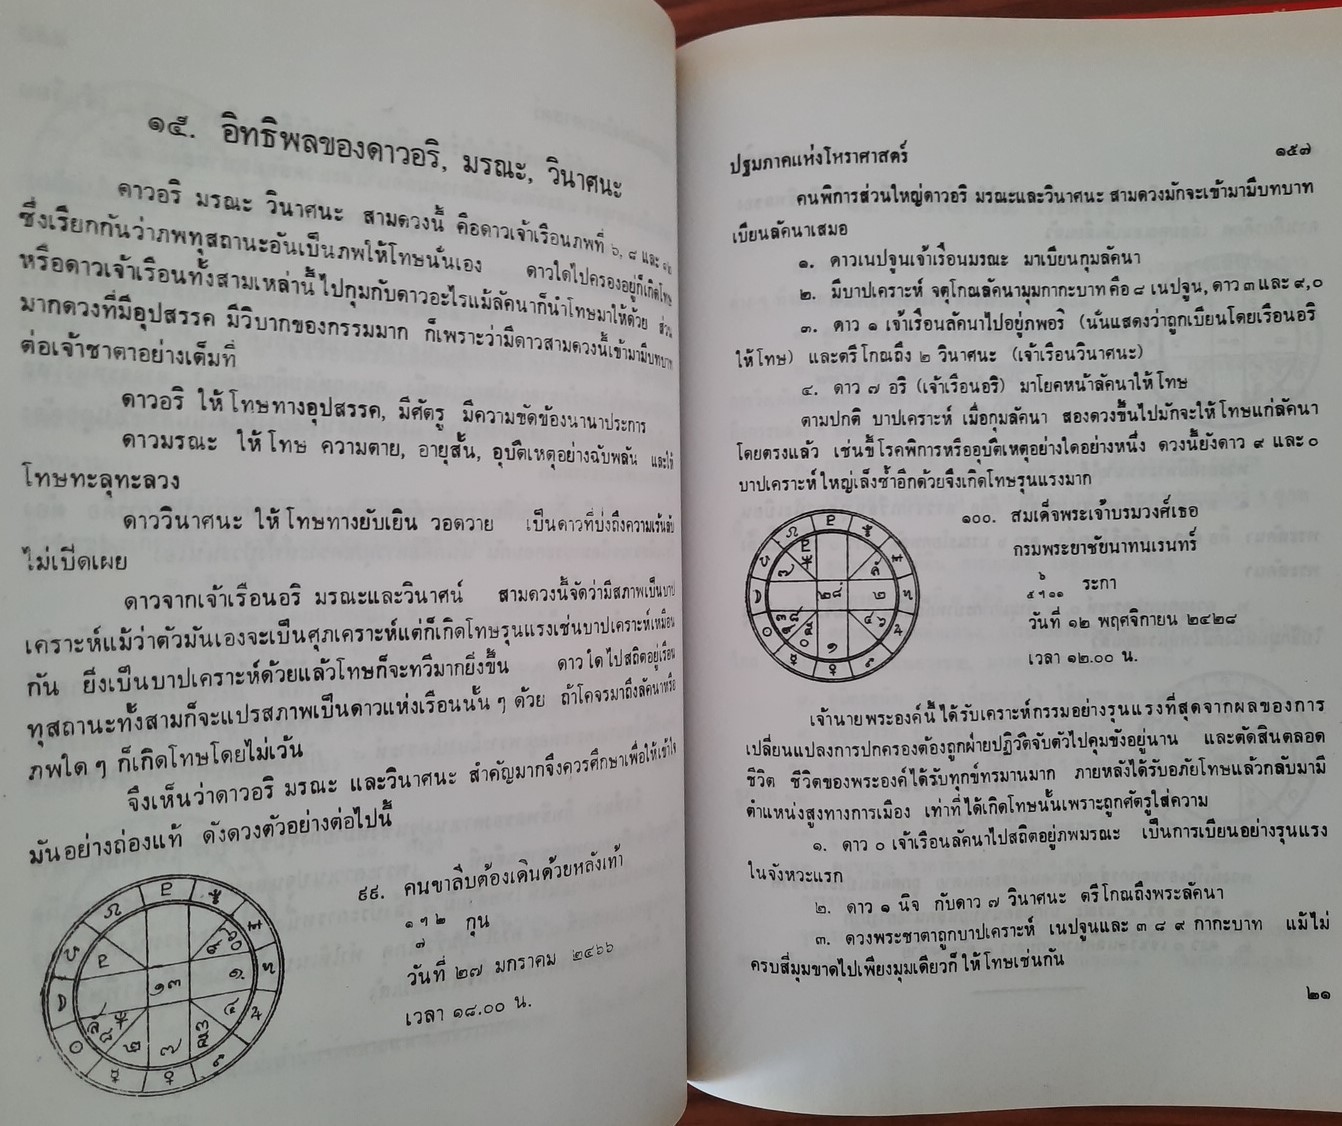 ๑๕. อิทธิพลของดาวอริ, มรณะ, วินาศนะ
ดาวอริ มรณะ วินาศนะ สามดวงนี้ คือดาวเจ้าเรือนภพที่ ๖, ๘ และ ๑๒
ซึ่งเรียกกันว่าภพทุสถานะอันเป็นภพให้โทษนั่นเอง ดาวใดไปครองอยู่ก็เกิดโทษ
หรือดาวเจ้าเรือนทั้งสามเหล่านี้ไปกุมกับดาวอะไรแม้ลัคนาก็นำโทษมาให้ด้วย ส่วน
มากดวงที่มีอุปสรรค มีวิบากของกรรมมาก ก็เพราะว่ามีดาวสามดวงนี้เข้ามามีบทบาท
ต่อเจ้าชาตาอย่างเต็มที่
ดาวอริ ให้โทษทางอุปสรรค, มีศัตรู มีความขัดข้องนานาประการ
ดาวมรณะ ให้โทษ ความตาย, อายุสั้น, อุบัติเหตุอย่างฉับพลัน และให้
โทษทะลุทะลวง
ดาววินาศนะ ให้โทษทางยับเยิน วอดวาย เป็นดาวที่บ่งถึงความเร้นลับ
ไม่เปิดเผย
ดาวจากเจ้าเรือนอริ มรณะและวินาศน์ สามดวงนี้จัดว่ามีสภาพเป็นบาป
เคราะห์แม้ว่าตัวมันเองจะเป็นศุภเคราะห์แต่ก็เกิดโทษรุนแรงเช่นบาปเคราะห์เหมือน
กัน ยิ่งเป็นบาปเคราะห์ด้วยแล้วโทษก็จะทวีมากยิ่งขึ้น ดาวใดไปสถิตอยู่เรือน
ทุสถานะทั้งสามก็จะแปรสภาพเป็นดาวแห่งเรือนนั้น ๆ ด้วย ถ้าโคจรมาถึงลัคนาหรือ
ภพใด ๆ ก็เกิดโทษโดยไม่เว้น
จึงเห็นว่าดาวอริ มรณะ และวินาศนะ สำคัญมากจึงควรศึกษาเพื่อให้เข้าใจ
มันอย่างถ่องแท้ ดังดวงตัวอย่างต่อไปนี้
๙๙. คนขาลีบต้องเดินด้วยหลังเท้า
๑ ๓ ๒ กุน
๗
วันที่ ๒๗ มกราคม ๒๔๖๖
เวลา ๑๘.๐๐ น.
ปฐมภาคแห่งโหราศาสตร์ ๑๕๗
คนพิการส่วนใหญ่ดาวอริ มรณะและวินาศนะ สามดวงมักจะเข้ามามีบทบาท
เบียนลัคนาเสมอ
๑. ดาวเนปจูนเจ้าเรือนมรณะ มาเบียนกุมลัคนา
๒. มีบาปเคราะห์ จตุโกณลัคนามุมกากะบาท คือ ๘ เนปจูน, ดาว ๓ และ ๙, ๐
๓. ดาว ๑ เจ้าเรือนลัคนาไปอยู่ภพอริ (นั่นแสดงว่าถูกเบียนโดยเรือนอริ
ให้โทษ) และตรีโกณถึง ๒ วินาศนะ (เจ้าเรือนวินาศนะ)
๔. ดาว ๗ อริ (เจ้าเรือนอริ) มาโยคหน้าลัคนาให้โทษ
ตามปกติ บาปเคราะห์ เมื่อกุมลัคนา สองดวงขึ้นไปมักจะให้โทษแก่ลัคนา
โดยตรงแล้ว เช่นขี้โรคพิการหรืออุบัติเหตุอย่างใดอย่างหนึ่ง ดวงนี้ยังดาว ๙ และ ๐
บาปเคราะห์ใหญ่เล็งซ้ำอีกด้วยจึงเกิดโทษรุนแรงมาก
๑๐๐. สมเด็จพระเจ้าบรมวงศ์เธอ
กรมพระยาชัยนาทนเรนทร์
๖
๕ ๆ ๑๑ ระกา
วันที่ ๑๒ พฤศจิกายน ๒๔๒๘
เวลา ๑๒.๐๐ น.
เจ้านายพระองค์นี้ได้รับเคราะห์กรรมอย่างรุนแรงที่สุดจากผลของการ
เปลี่ยนแปลงการปกครองต้องถูกฝ่ายปฏิวัติจับตัวไปคุมขังอยู่นาน และตัดสินตลอด
ชีวิต ชีวิตของพระองค์ได้รับทุกข์ทรมานมาก ภายหลังได้รับอภัยโทษแล้วกลับมามี
ตำแหน่งสูงทางการเมือง เท่าที่ได้เกิดโทษนั้นเพราะถูกศัตรูใส่ความ
๑. ดาว ๐ เจ้าเรือนลัคนาไปสถิตอยู่ภพมรณะ เป็นการเบียนอย่างรุนแรง
ในจังหวะแรก
๒. ดาว ๑ นิจ กับดาว ๗ วินาศนะ ตรีโกณถึงพระลัคนา
๓. ดวงพระชาตาถูกบาปเคราะห์ เนปจูนและ ๓ ๘ ๙ กากะบาท แม้ไม่
ครบสี่มุมขาดไปเพียงมุมเดียวก็ให้โทษเช่นกัน
๒๑